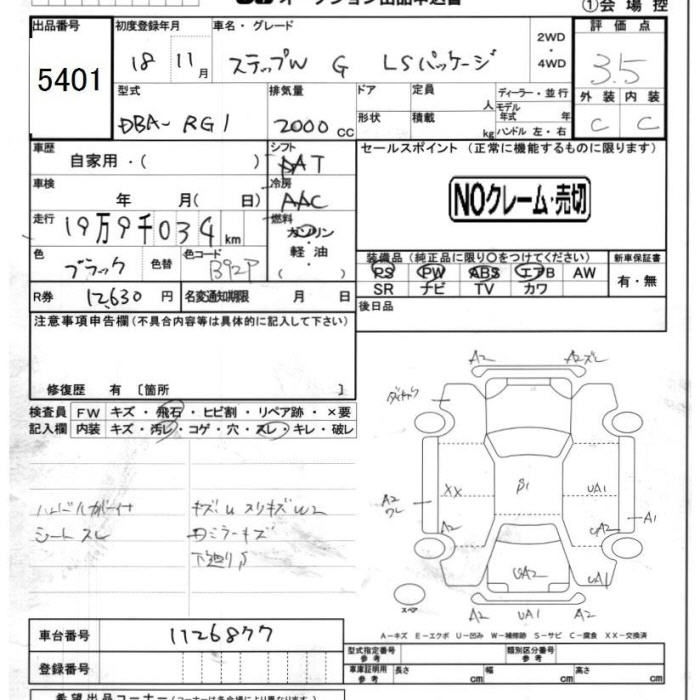 ①会場控
出品番号
5401
初度登録年月
18 11月
車名・グレード
ステップW G LSパッケージ
2WD
・
4WD
評価点
3.5
外装 内装
C C
型式
DBA- RG1
排気量
2000 cc
ドア
形状
定員
人
積載
kg
ディーラー・並行
モデル
年式 年
ハンドル 左・右
車歴
自家用・( )
シフト
AT
車検
年 月( 日)
冷房
AAC
走行
19万9千034km
燃料
ガソリン
・
軽油
( )
色
ブラック
色替
色コード
B92P
R券
12,630 円
名変通知期限 月 日
セールスポイント(正常に機能するものに限ります)
NOクレーム・売切
装備品(純正品に限り○をつけてください)
PS PW ABS エアB AW
SR ナビ TV カワ
新車保証書
有・無
後日品
注意事項申告欄(不具合内容等は具体的に記入して下さい)
修復歴 有 [箇所 ]
検査員
記入欄
FW キズ・飛石・ヒビ割・リペア跡・×要
内装 キズ・汚レ・コゲ・穴・スレ・キレ・破レ
シートスレ
下廻りS
A2
A2
ワレ
XX
A2
UA1
A1
UA2
UA1
UA2
A2 UA1 A2
スペア
A−キズ E−エクボ U−凹み W−補修跡 S−サビ C−腐食 XX−交換済
車台番号
1126877
登録番号
型式指定番号
参考
類別区分番号
参考
車庫証明用
参考
長さ cm
幅 cm
高さ cm
希望出品コーナー